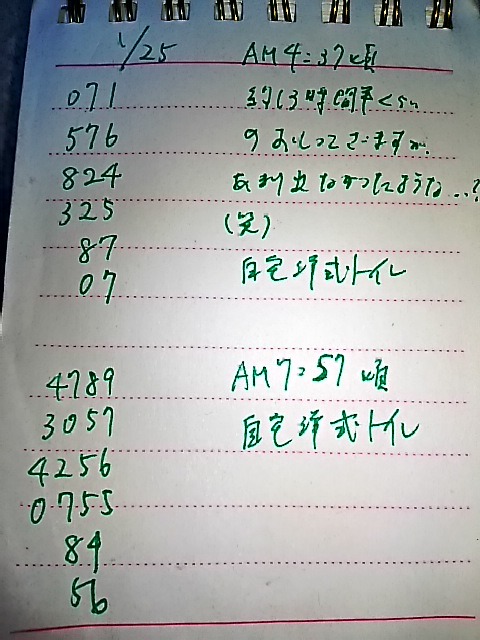 1/25 AM4:37頃
071 約13時間半くらい
576 のおしっこでございますが、
824 あまり出なかったような…?
325 (笑)
87
07 自宅洋式トイレ
4789 AM7:57頃
3057 自宅洋式トイレ
4256
0755
84
56